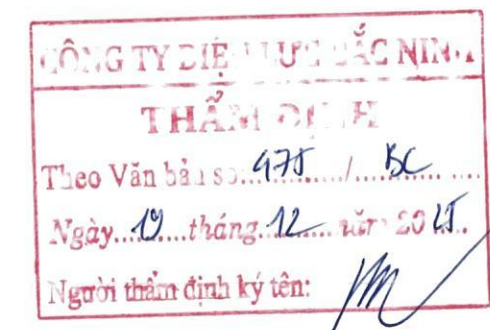 CÔNG TY ĐIỆN LỰC BẮC NINH
THẨM ĐỊNH
Theo Văn bản số: 475 / BC
Ngày 19 tháng 12 năm 2025
Người thẩm định ký tên: